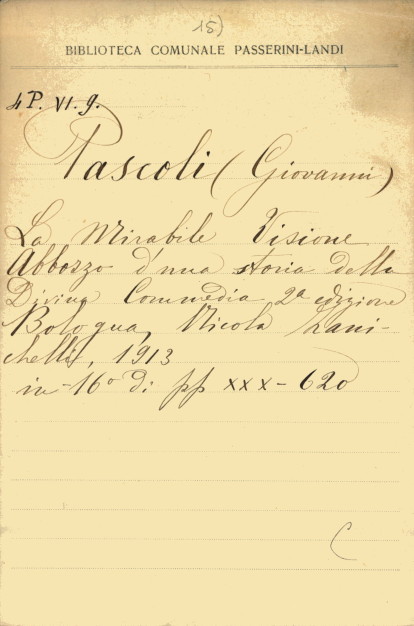 15)
BIBLIOTECA COMUNALE PASSERINI-LANDI
4 P. VI. 9.
Pascoli (Giovanni)
La Mirabile Visione
Abbozzo d'una storia della
Divina Commedia, 2ª edizione
Bologna, Nicola Zani-
chelli, 1913
in-16° di pp XXX-620
C